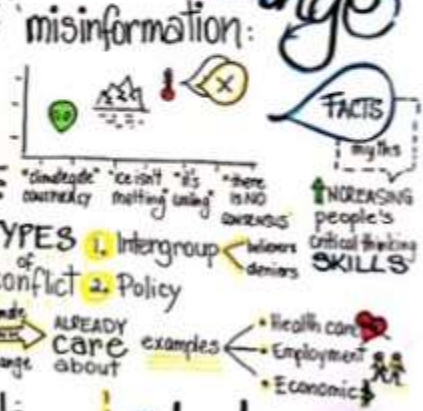 misinformation:
FACTS
myths
"climategate" "ice isn't "it's "there
conspiracy melting" cooling" IS NO
CONSENSUS"
INCREASING
people's
critical thinking
SKILLS
YPES 1. Intergroup believers
of deniers
onflict 2. Policy
ALREADY
care
about
examples
• Health care
• Employment
• Economic